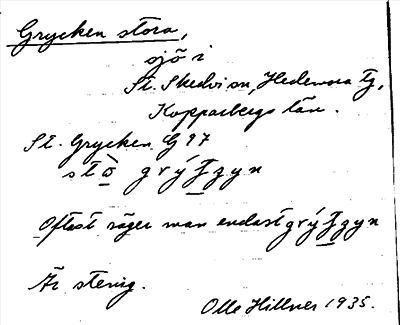 Grycken stora,
sjö i
St. Skedvi sn, Hedemora tg,
Kopparbergs län.
St. Grycken G 97
stò grýʃgyn
Oftast säger man endast grýʃgyn
Är stenig.
Olle Hillner 1935.